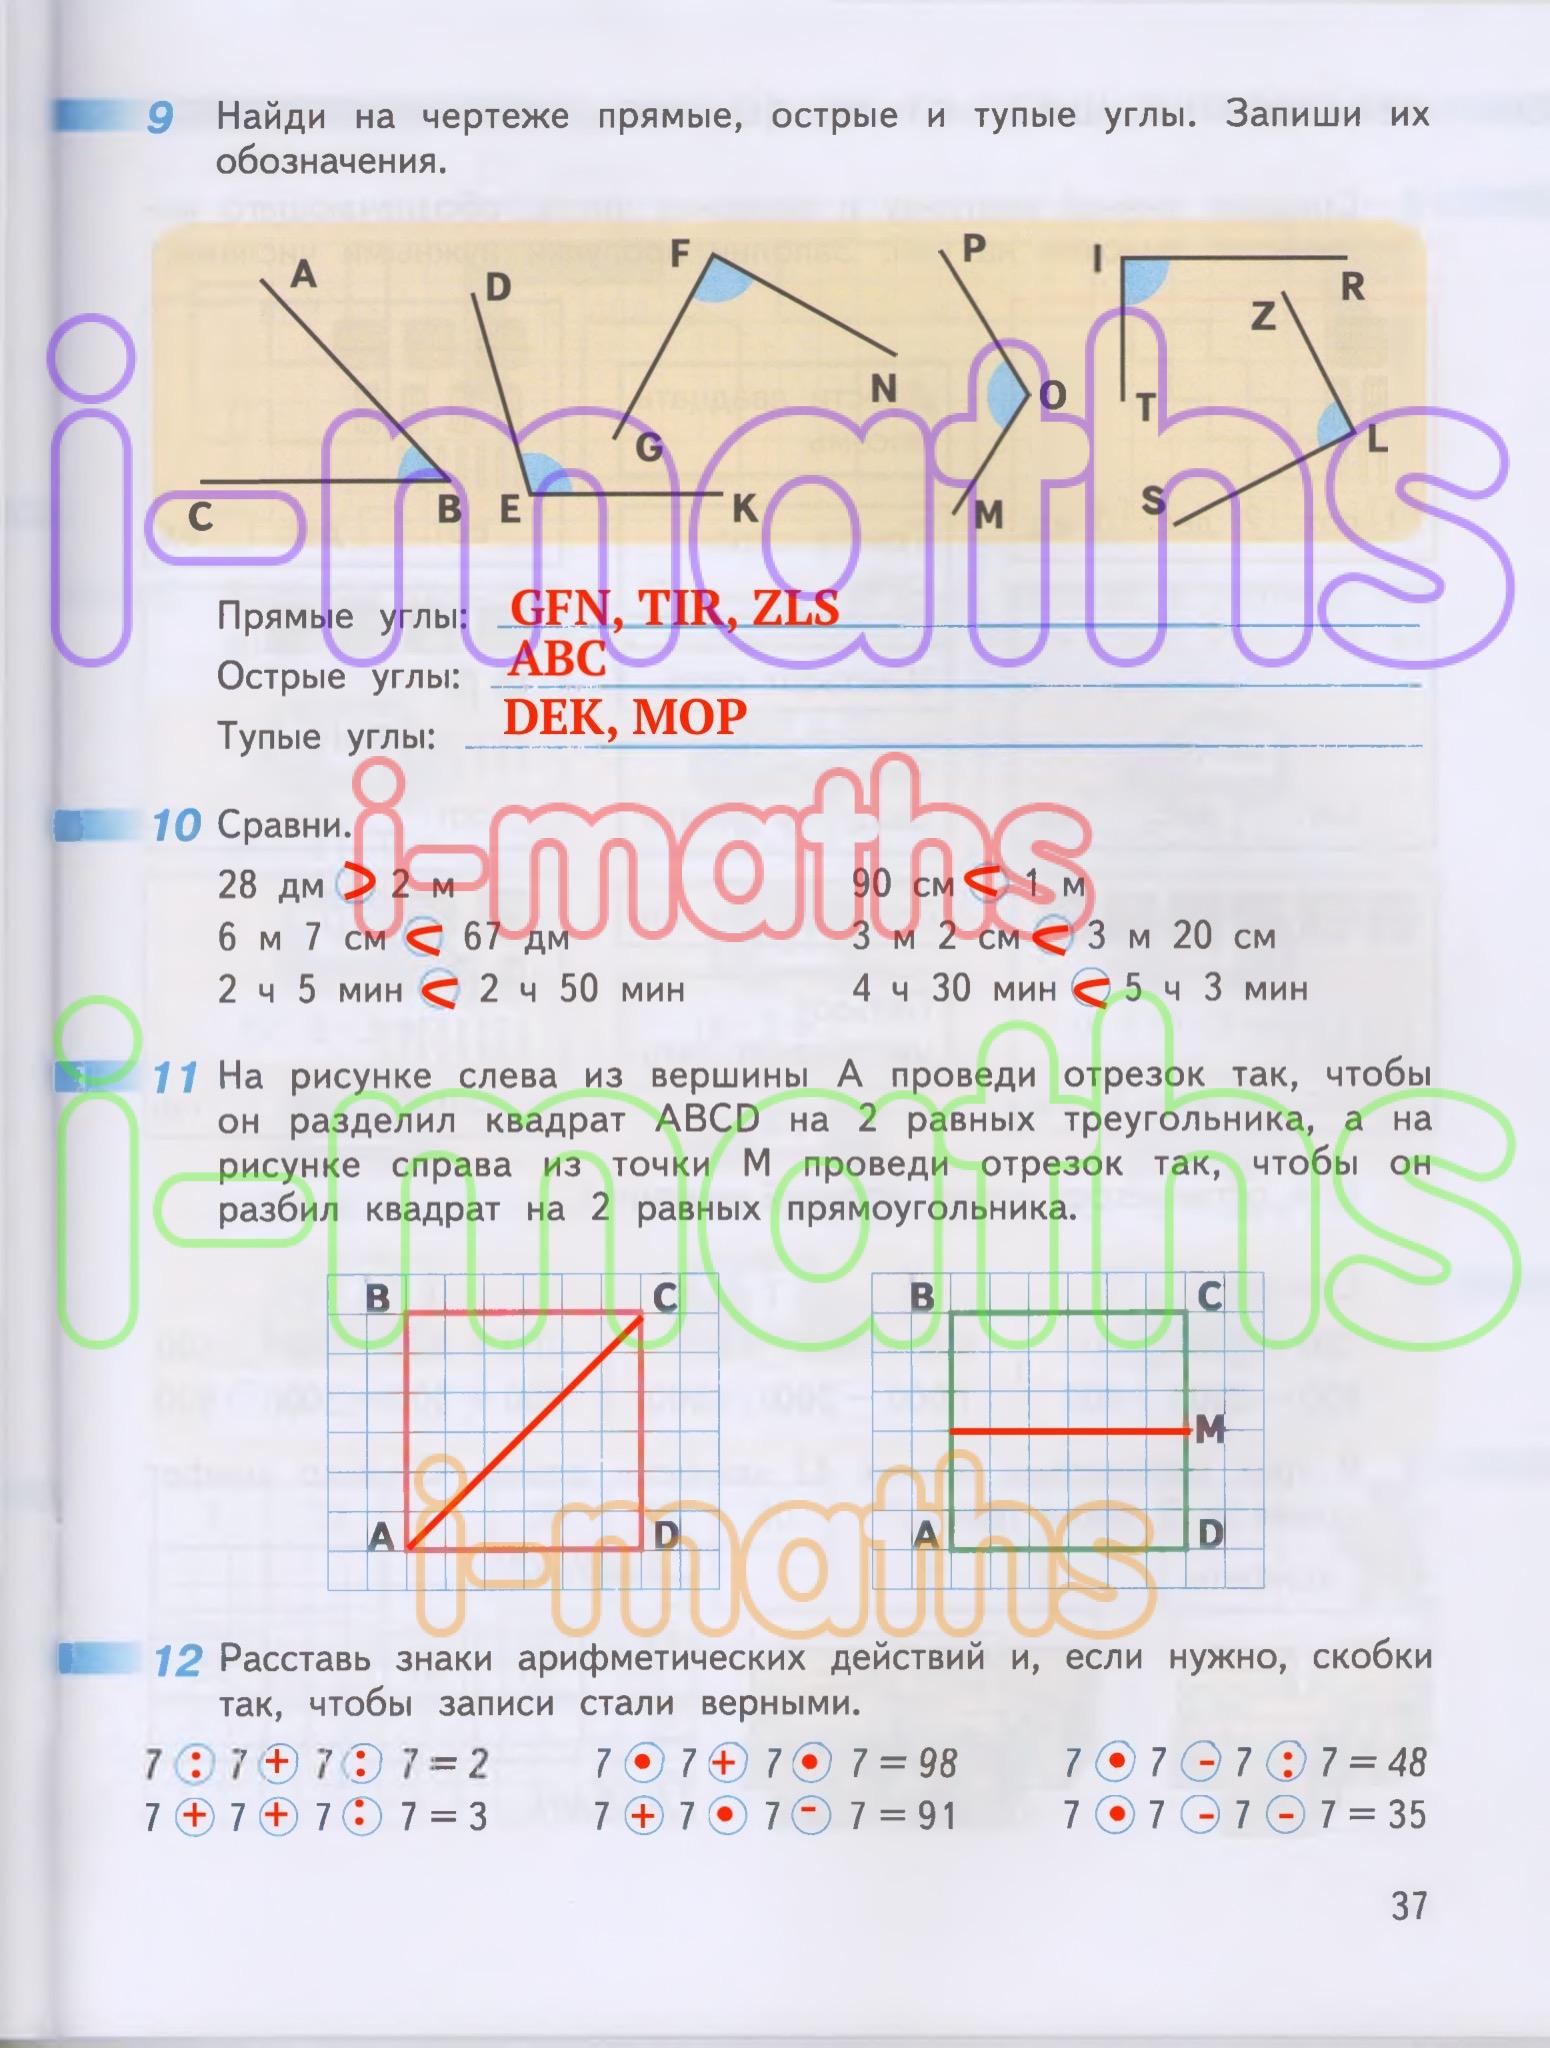 9 Найди на чертеже прямые, острые и тупые углы. Запиши их
обозначения.
A D F P I R
Z
N O T
G L
C B E K M S
i-maths
Прямые углы: GFN, TIR, ZLS
Острые углы: ABC
Тупые углы: DEK, MOP
i-maths
10 Сравни.
28 дм > 2 м 90 см < 1 м
6 м 7 см < 67 дм 3 м 2 см < 3 м 20 см
2 ч 5 мин < 2 ч 50 мин 4 ч 30 мин < 5 ч 3 мин
i-maths
11 На рисунке слева из вершины A проведи отрезок так, чтобы
он разделил квадрат ABCD на 2 равных треугольника, а на
рисунке справа из точки M проведи отрезок так, чтобы он
разбил квадрат на 2 равных прямоугольника.
B C B C
M
A D A D
i-maths
12 Расставь знаки арифметических действий и, если нужно, скобки
так, чтобы записи стали верными.
7 : 7 + 7 : 7 = 2 7 • 7 + 7 • 7 = 98 7 • 7 - 7 : 7 = 48
7 + 7 + 7 : 7 = 3 7 + 7 • 7 - 7 = 91 7 • 7 - 7 - 7 = 35
37